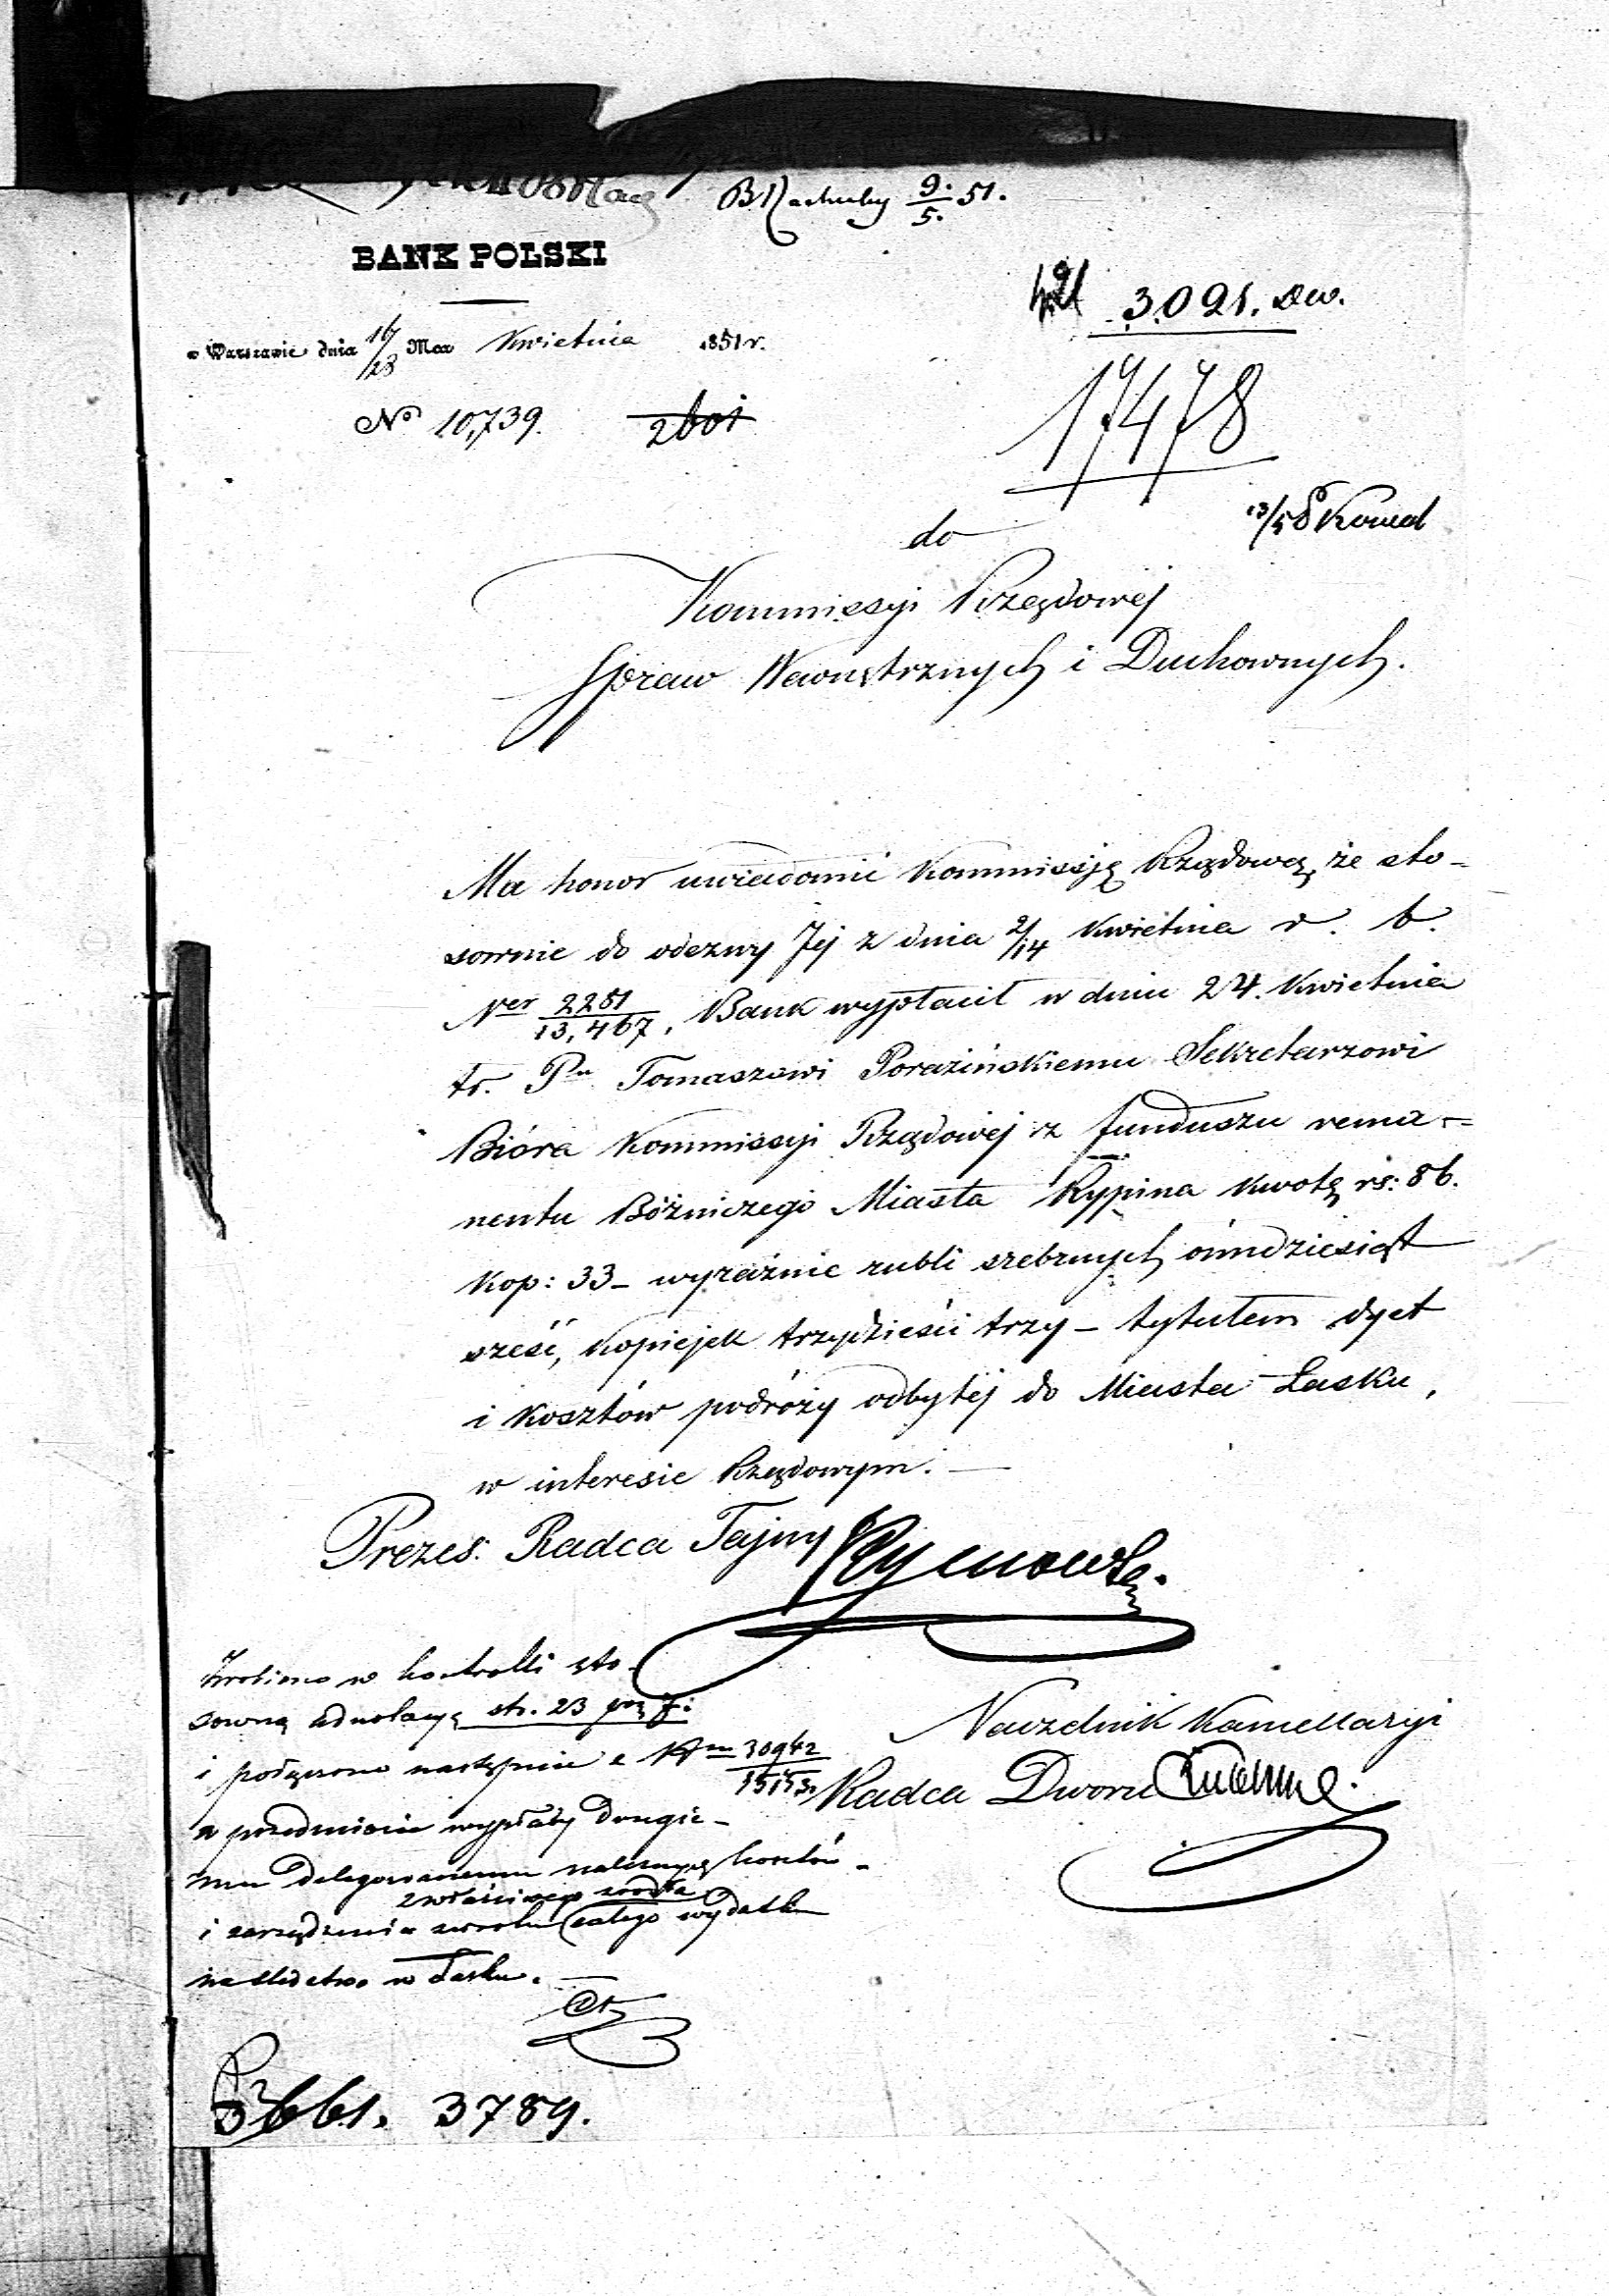 B Rachuby 9./5. 51.
BANK POLSKI
w Warszawie dnia 16/28 Mca Kwietnia 1851 r.
3091. Dw.
No 10,739.
17478
do
Kommissyi Rządowéj
Spraw Wewnętrznych i Duchownych.
Ma honor uwiadomić Kommissyę Rządową, że sto-
sownie do odezwy Jéj z dnia 2/14 Kwietnia r. b.
Ner 2251/13,467, Bank wypłacił w dniu 24. Kwietnia
tr. Pu Tomaszowi Porazińskiemu Sekretarzowi
Bióra Kommissyi Rządowéj z funduszu rema-
nentu Bóżniczego Miasta Rypina kwotę rs: 86.
kop: 33 – wyraźnie rubli srebrnych ośmdziesiąt
sześć, kopiejek trzydzieści trzy – tytułem dyet
i kosztów podróży odbytéj do Miasta Łasku,
w interesie Rządowym. –
Prezes. Radca Tajny Tymowski.
Zrobiono w kontrolli sto-
sowną adnotacyę str. 23 poz 7.
i połączono następnie z
Naczelnik Kancellaryi
Radca Dworu
w przedmiocie wypłaty drugie-
mu Delegowanemu należnych kosztów
z właściwego źródła
i zarządzenia zwrotu całego wydatku
na śledztwo w Łasku. –
3661. 3789.